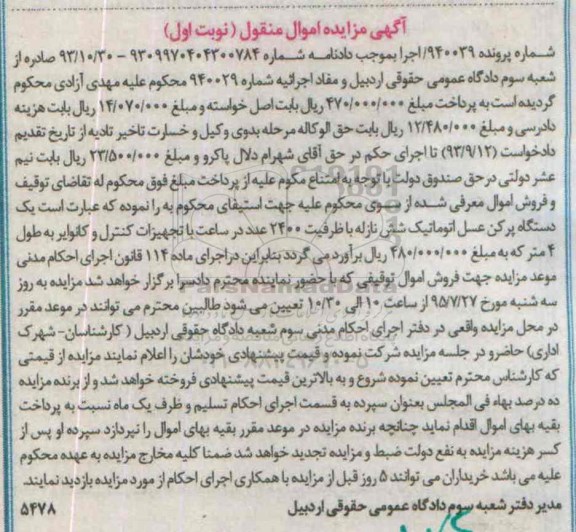 آگهی مزایده اموال منقول (نوبت اول)
شماره پرونده ۹۴۰۰۳۹/اجرا بموجب دادنامه شماره ۹۳۰۹۹۷۰۴۰۴۳۰۰۷۸۴ - ۹۳/۱۰/۳۰ صادره از
شعبه سوم دادگاه عمومی حقوقی اردبیل و مفاد اجرائیه شماره ۹۴۰۰۲۹ محکوم علیه مهدی آزادی محکوم
گردیده است به پرداخت مبلغ ۴۷۰/۰۰۰/۰۰۰ ریال بابت اصل خواسته و مبلغ ۱۴/۰۷۰/۰۰۰ ریال بابت هزینه
دادرسی و مبلغ ۱۲/۴۸۰/۰۰۰ ریال بابت حق الوکاله مرحله بدوی وکیل و خسارت تاخیر تادیه از تاریخ تقدیم
دادخواست (۹۳/۹/۱۲) تا اجرای حکم در حق آقای شهرام دلال پاکرو و مبلغ ۲۳/۵۰۰/۰۰۰ ریال بابت نیم
عشر دولتی در حق صندوق دولت با توجه به امتناع مکوم علیه از پرداخت مبلغ فوق محکوم له تقاضای توقیف
و فروش اموال معرفی شده از سوی محکوم علیه جهت استیفای محکوم به را نموده که عبارت است یک
دستگاه پرکن عسل اتوماتیک شش نازله با ظرفیت ۲۴۰۰ عدد در ساعت با تجهیزات کنترل و کانوایر به طول
۴ متر که به مبلغ ۴۸۰/۰۰۰/۰۰۰ ریال برآورد می گردد بنابراین دراجرای ماده ۱۱۴ قانون اجرای احکام مدنی
موعد مزایده جهت فروش اموال توقیفی که با حضور نماینده محترم دادسرا برگزار خواهد شد مزایده به روز
سه شنبه مورخ ۹۵/۷/۲۷ از ساعت ۱۰ الی ۱۰/۳۰ تعیین می شود طالبین محترم می توانند در موعد مقرر
در محل مزایده واقعی در دفتر اجرای احکام مدنی سوم شعبه دادگاه حقوقی اردبیل (کارشناسان- شهرک
اداری) حاضرو در جلسه مزایده شرکت نموده و قیمت پیشنهادی خودشان را اعلام نمایند مزایده از قیمتی
که کارشناس محترم تعیین نموده شروع و به بالاترین قیمت پیشنهادی فروخته خواهد شد و از برنده مزایده
ده درصد بهاء فی المجلس بعنوان سپرده به قسمت اجرای احکام تسلیم و ظرف یک ماه نسبت به پرداخت
بقیه بهای اموال اقدام نماید چنانچه برنده مزایده در موعد مقرر بقیه بهای اموال را نپردازد سپرده او پس از
کسر هزینه مزایده به نفع دولت ضبط و مزایده تجدید خواهد شد ضمنا کلیه مخارج مزایده به عهده محکوم
علیه می باشد خریداران می توانند ۵ روز قبل از مزایده با همکاری اجرای احکام از مورد مزایده بازدید نمایند.
مدیر دفتر شعبه سوم دادگاه عمومی حقوقی اردبیل
۵۴۷۸